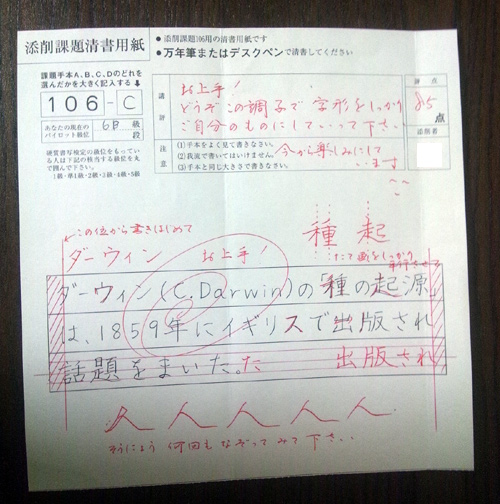 添削課題清書用紙
● 添削課題106用の清書用紙です
● 万年筆またはデスクペンで清書してください
課題手本A、B、C、Dのどれを
選んだかを大きく記入する↓
106-C
あなたの現在の
パイロット級位
6B 級
段
硬筆書写検定の級位をもってい
る人は下記の該当する級位を丸
で囲んで下さい。
1級・準1級・2級・3級・4級・5級
講評
お上手!
どうぞこの調子で字形をしっかり
ご自分のものにしていって下さい。
今から楽しみにして
います
注意
(1)手本をよく見て書きなさい。
(2)我流で書いてはいけません。
(3)手本と同じ大きさで書きなさい。
評点
85
点
添削者
この位から書きはじめて
ダーウィン
お上手!
種 起
たて画をしっかり
平行させて
ダーウィン(C.Darwin)の「種の起源」
は、1859年にイギリスで出版され
話題をまいた。た
出版され
人 人 人 人 人
何回もなぞってみて下さい